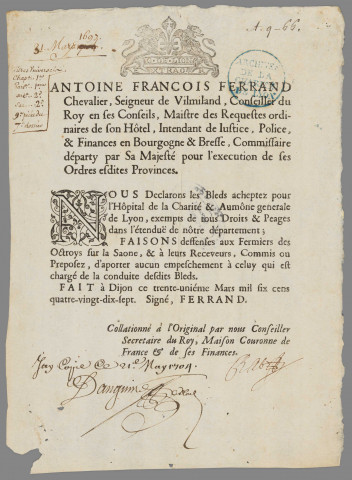 1697.
31 Mars
A. 9-66.
ARCHIVES
DE LA
ANTOINE FRANCOIS FERRAND
Chevalier, Seigneur de Vilmiland, Conseiller du
Roy en ses Conseils, Maistre des Requestes ordi-
naires de son Hôtel, Intendant de Iustice, Police,
& Finances en Bourgogne & Bresse, Commissaire
départy par Sa Majesté pour l'execution de ses
Ordres esdites Provinces.
NOUS Declarons les Bleds acheptez pour
l'Hôpital de la Charité & Aumône generale
de Lyon, exempts de tous Droits & Peages
dans l'étenduë de nôtre département;
FAISONS deffenses aux Fermiers des
Octroys sur la Saone, & à leurs Receveurs, Commis ou
Preposez, d'aporter aucun empeschement à celuy qui est
chargé de la conduite desdits Bleds.
FAIT à Dijon ce trente-uniéme Mars mil six cens
quatre-vingt-dix-sept. Signé, FERRAND.
Collationné à l'Original par nous Conseiller
Secretaire du Roy, Maison Couronne de
France & de ses Finances.